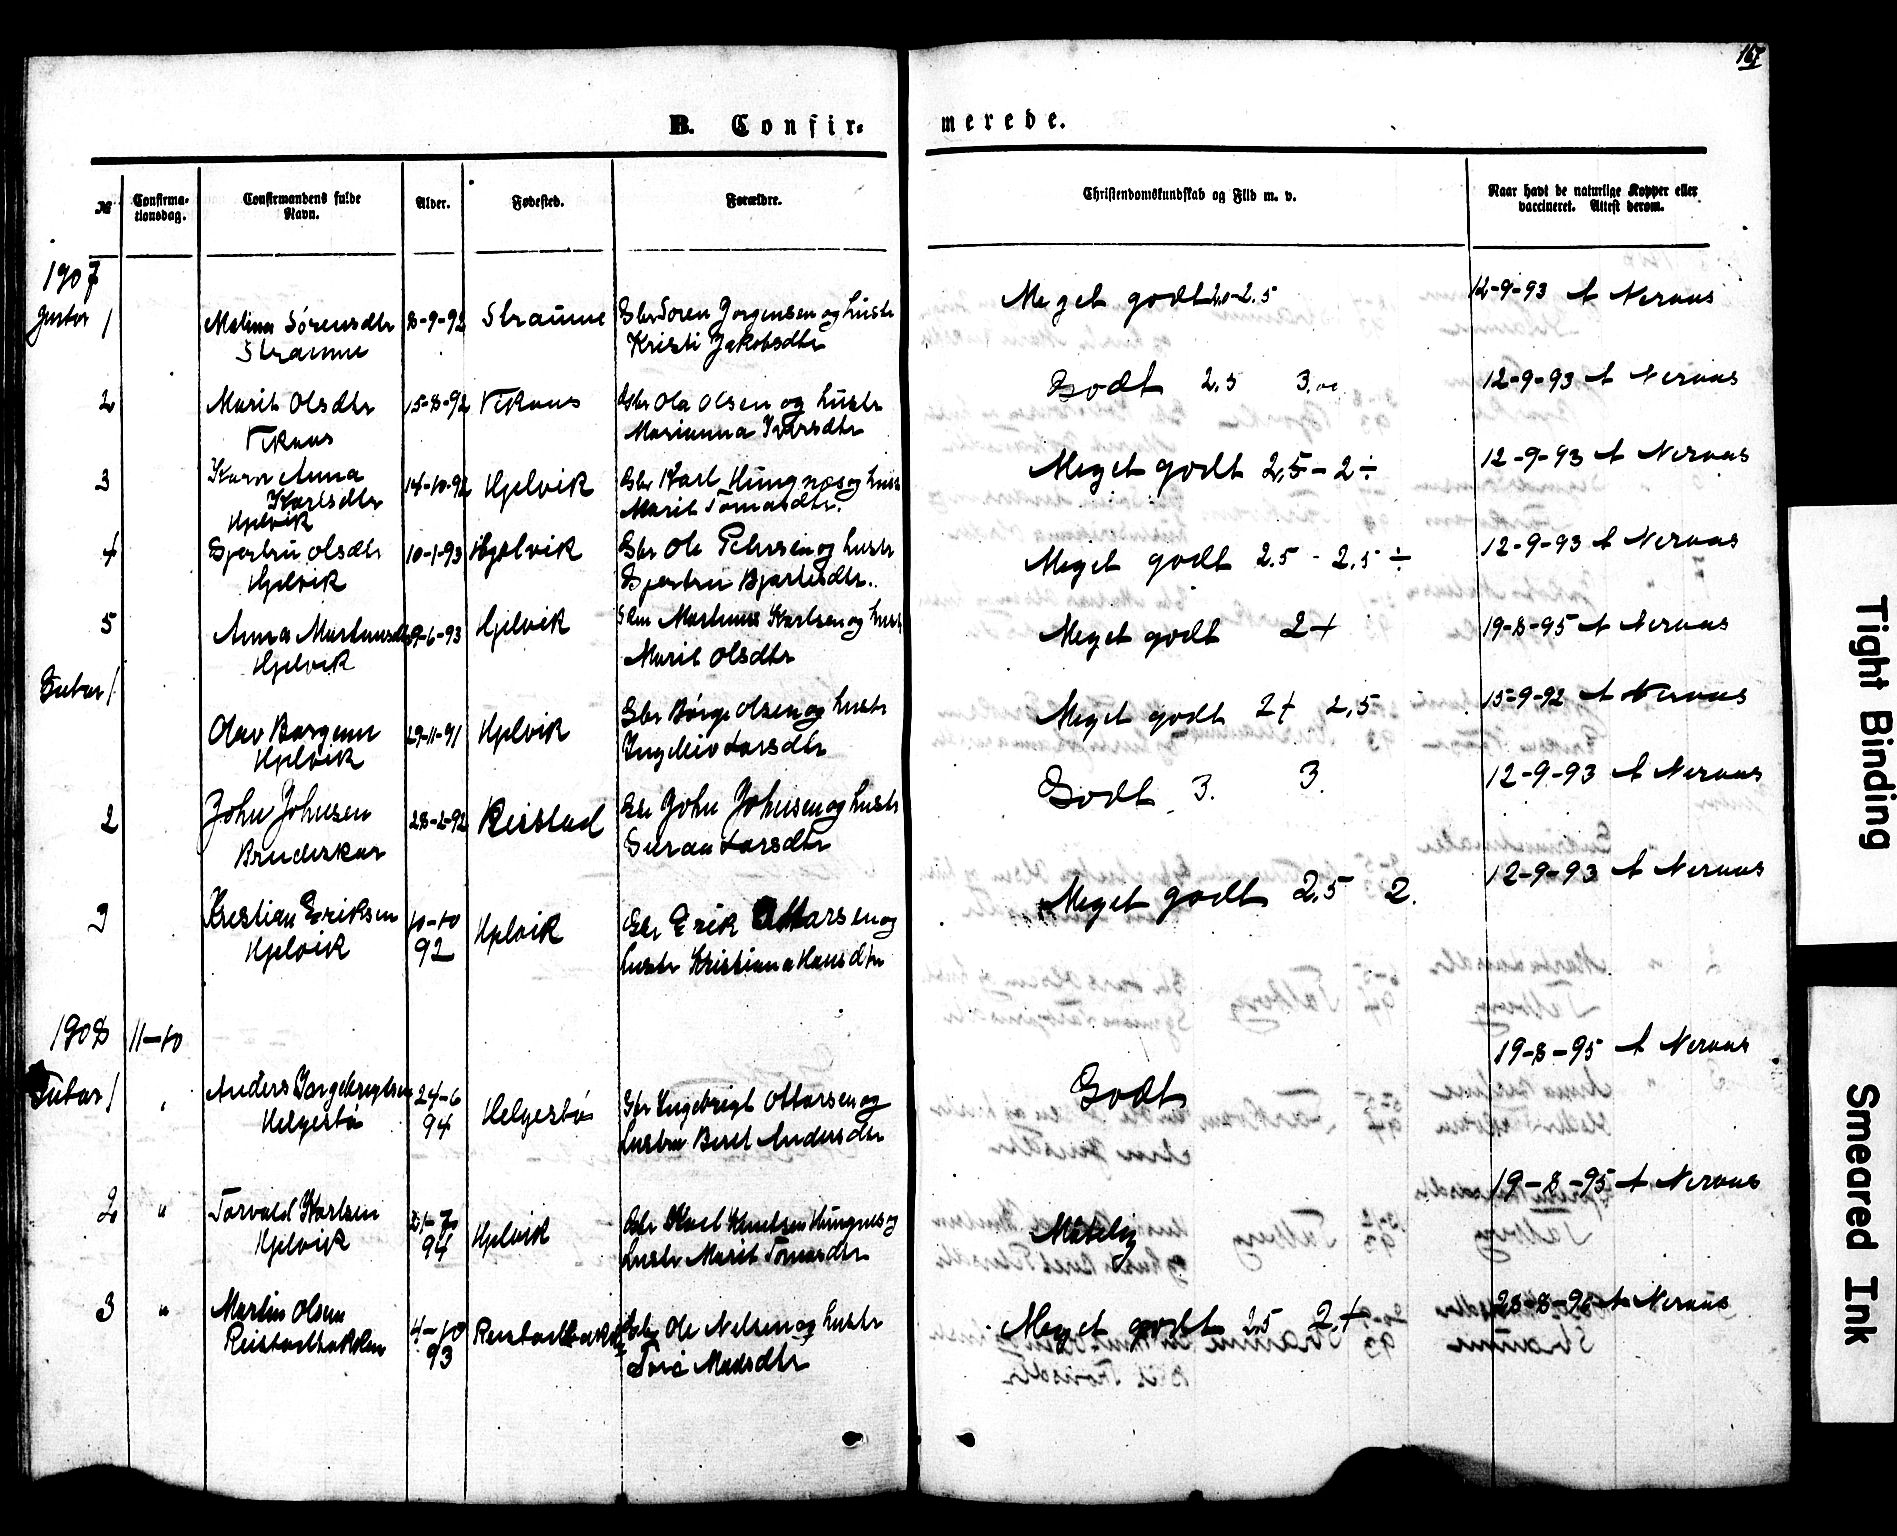 167
B. Confir-
merede.
№
Confirma-
tionsdag.
Confirmandens fulde
Navn.
Alder.
Fødested.
Forældre.
Christendomskundskab og Flid m. v.
Naar havt de naturlige Kopper eller
vaccineret. Attest derom.
1907
1
Malina Sørensdtr
Straume
8-9-92
Straume
Gbr Søren Jørgensen og hustr
Kristi Jakobsdtr
Meget godt 2.0-2.5
12-9-93 A Neraas
2
Marit Olsdtr
Vikaas
15-8-92
Vikaas
Gbr Ola Olsen og hustr
Marianna Iversdtr
Godt 2.5 3.00
12-9-93 A Neraas
3
Karn Anna
Karlsdtr
Hjelvik
14-10-92
Hjelvik
Gbr Karl Hungnæs og hustr
Marit Tomasdtr.
Meget godt 2,5-2÷
12-9-93 A Neraas
4
Gjertru Olsdtr
Hjelvik
10-1-93
Hjelvik
Gbr Ole Petersen og hustr
Gjertru Bjartesdtr.
Meget godt 2.5 - 2.5 ÷
12-9-93 A Neraas
5
Anna Martinusdtr
Hjelvik
-6-93
Hjelvik
Martinus Karlsen og hustr
Marit Olsdtr
Meget godt 2+
19-8-95 A Neraas
Gutar 1
Olav Børgenn
Hjelvik
29-11-91
Hjelvik
Gbr Børge Olsen og hustr
Ingeleiv Larsdtr
Meget godt 2+ 2,5
15-9-92 A Neraas
2
John Johnsen
Bruderkar
28-2-92
Reistad
Gbr John Johnsen og hustr
Larsdtr
Godt 3. 3.
12-9-93 A Neraas
3
Kristian Eriksen
Hjelvik
10-10
92
Hjelvik
Gbr Erik Ottarsen og
hustr Kristiana Hansdtr
Meget godt 2.5 2.
12-9-93 A Neraas
1908 11-10
Gutar 1
Anders Ingebrigtsen
Helgestø
24-6
94
Helgestø
Gbr Ingebrigt Ottarsen og
hustru Beret Andersdtr
Godt
19-8-95 A Neraas
2 "
Torvald Karlsen
Hjelvik
21-7
94
Hjelvik
Gbr Karl Knutsen Hungnes og
hustr Marit Tomasdtr
Måtelig
19-8-95 A Neraas
3 "
Martin Olsen
Reistadbakken
4-10
93
Reistadbakk
Ole Nelsen og hustr
Madsdtr
Meget godt 2.5 2.+
28-8-96 A Neraas
Tight Binding
Smeared Ink